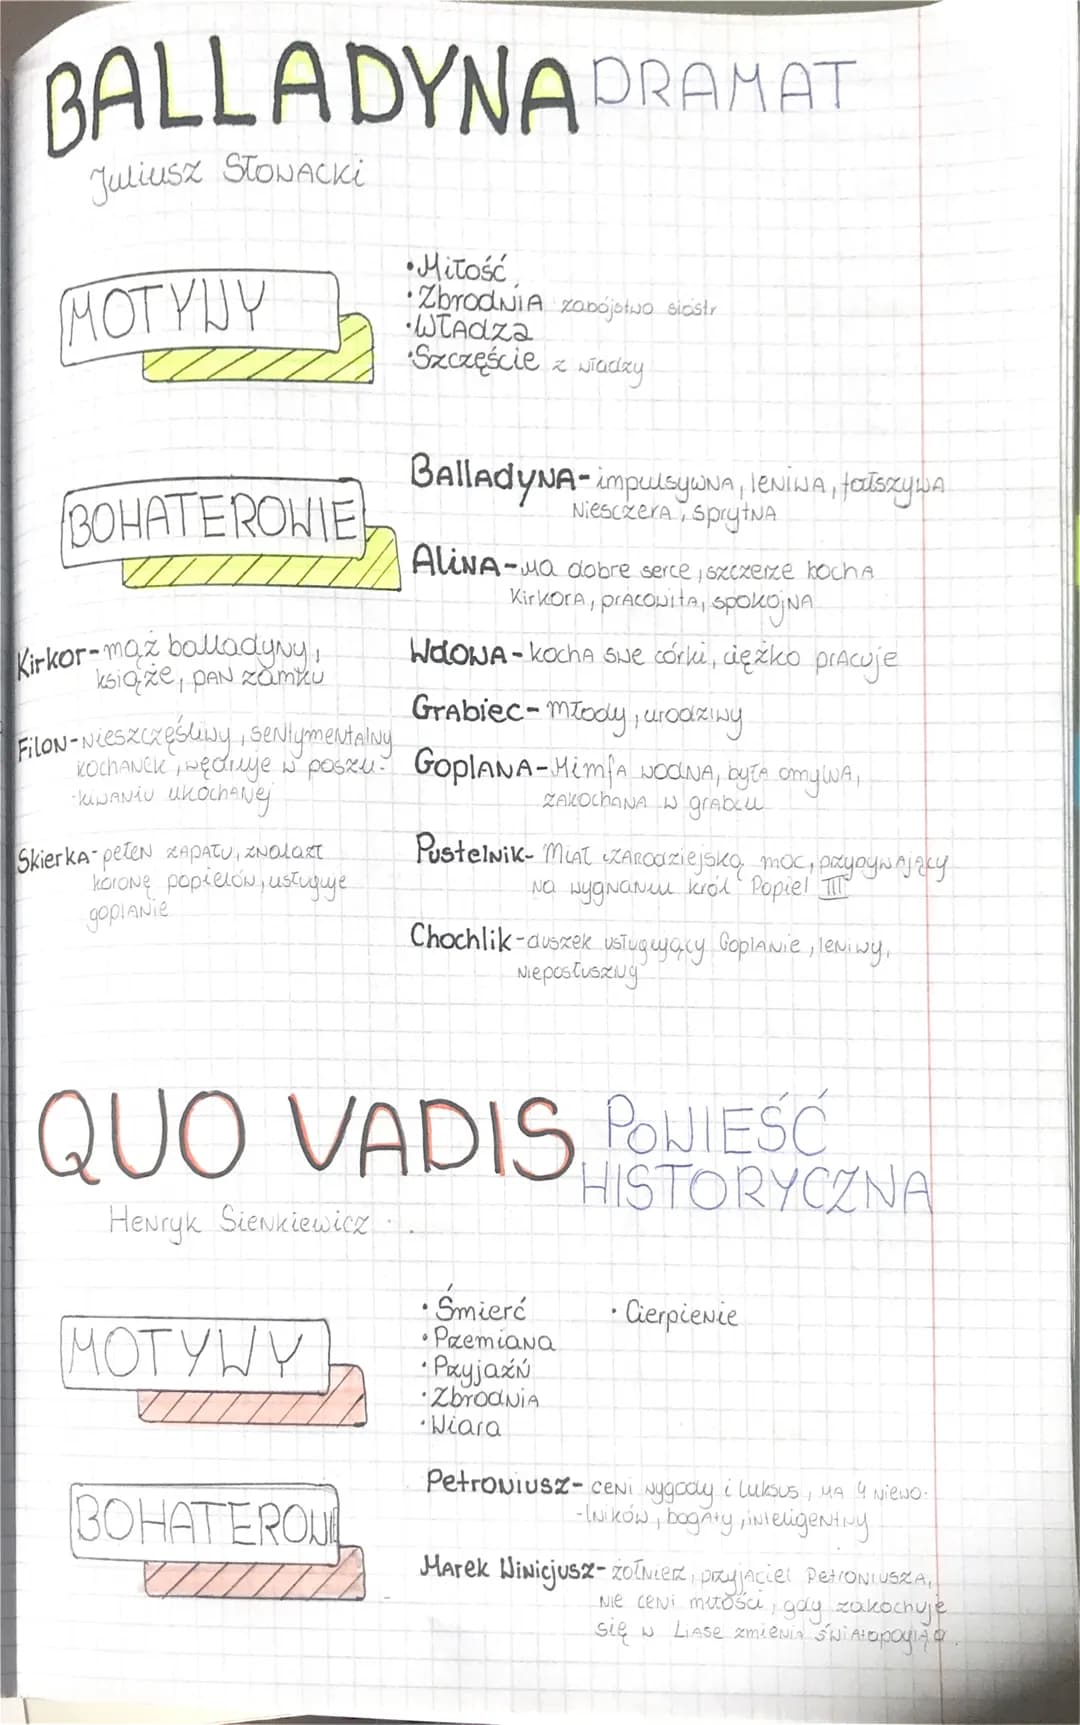 BALLADYNA DRAMAT
Juliusz Słowacki
MOTYWY
•Miłość
•Zbrodnia zabójstwo siostr
•Władza
•Szczęście z władzy
BOHATEROWIE
Balladyna-impulsywna, leniwa, fałszywa
Niesczera, sprytna
Alina-ma dobre serce, szczerze kocha
Kirkora, pracowita, spokojna
Wdowa-kocha swe córki, ciężko pracuje
Grabiec-młody, urodziwy
Goplana-Nimfa wodna, była omylna,
zakochana w grabcu
Pustelnik-Miał czarodziejską moc, przybywający
na wygnaniu król Popiel III
Chochlik-duszek usługujący Goplanie, leniwy,
nieposłuszny
Kirkor-mąż balladyny,
książe, pan zamku
Filon-nieszczęśliwy, sentymentalny
kochanek, wędruje w poszu-
-kiwaniu ukochanej
Skierka-pełen zapału, znalazł
koronę popielów, usługuje
goplanie
QUO VADIS POWIEŚĆ
HISTORYCZNA
Henryk Sienkiewicz
MOTYWY
•Śmierć
•Przemiana
•Przyjaźń
•Zbrodnia
•Wiara
•Cierpienie
BOHATEROWIE
Petroniusz-ceni wygody i luksus, ma niewo-
-lników, bogaty, inteligentny
Marek Winicjusz-żołnierz, przyjaciel Petroniusza,
nie ceni miłości, gdy zakochuje
się w Liase zmienia światopogląd